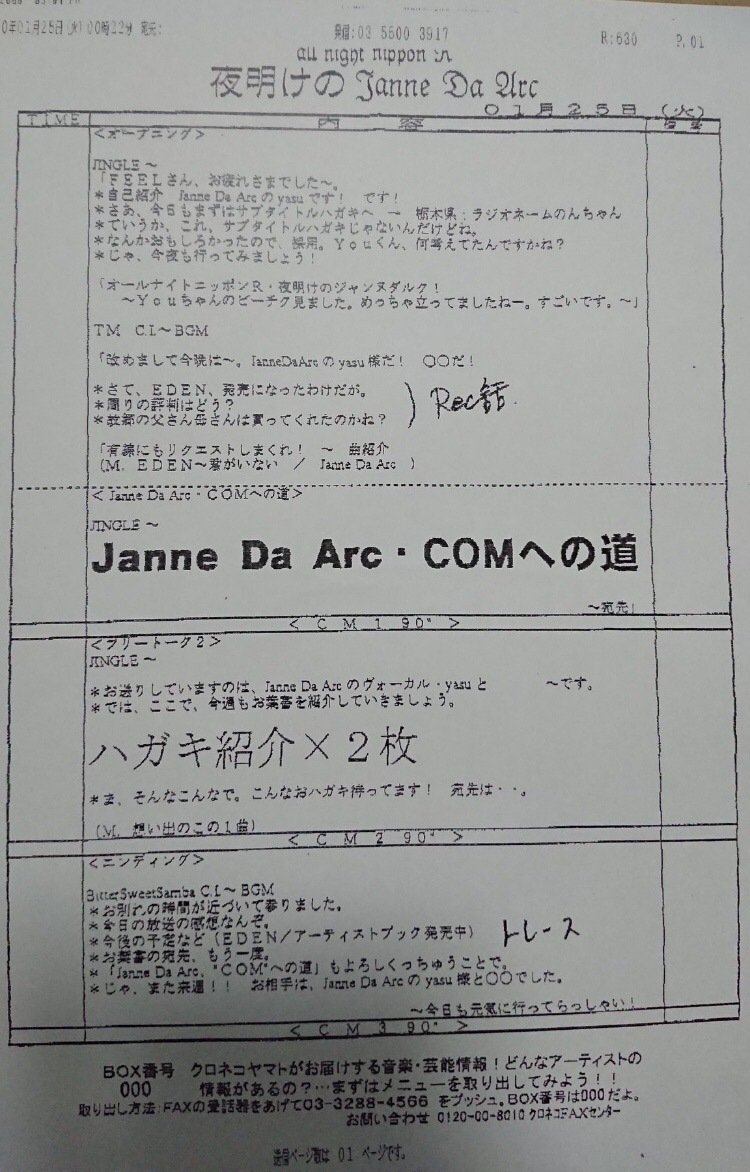 0年01月25日(火)00時22分 宛先:
発信:03 5500 3917
R:630
P.01
all night nippon R
夜明けの Janne Da Arc
01月25日 (火)
TIME
内 容
<オープニング>
JINGLE～
「FEELさん、お疲れさまでした～。
*自己紹介 Janne Da Arcのyasuです! です!
*さあ、今日もまずはサブタイトルハガキへ → 栃木県:ラジオネームのんちゃん
*ていうか、これ、サブタイトルハガキじゃないんだけどね。
*なんかおもしろかったので、採用。Youくん、何考えてたんですかね?
*じゃ、今夜も行ってみましょう!
「オールナイトニッポンR・夜明けのジャンヌダルク!
～Youちゃんのビーチク見ました。めっちゃ立ってましたねー。すごいです。～」
TM C.I～BGM
「改めまして今晩は～。JanneDaArcのyasu様だ! ○○だ!
*さて、EDEN、発売になったわけだが。
*周りの評判はどう?
*故郷の父さん母さんは買ってくれたのかね?
Rec話
「有線にもリクエストしまくれ! ～ 曲紹介
(M. EDEN～君がいない / Janne Da Arc )
<Janne Da Arc・COMへの道>
JINGLE～
Janne Da Arc・COMへの道
～宛先!
< CM1 90" >
<フリートーク2>
JINGLE～
*お送りしていますのは、Janne Da Arcのヴォーカル・yasuと ～です。
*では、ここで、今週もお葉書を紹介していきましょう。
ハガキ紹介×2枚
*ま、そんなこんなで。こんなおハガキ待ってます! 宛先は・・。
(M. 想い出のこの1曲)
< CM2 90" >
<エンディング>
BitterSweetSamba C.I.～BGM
*お別れの時間が近づいて参りました。
*今日の放送の感想なんぞ。
*今後の予定など(EDEN/アーティストブック発売中)
トレース
*お葉書の宛先、もう一度。
*「Janne Da Arc、"COM"への道」もよろしくっちゅうことで。
*じゃ、また来週!! お相手は、Janne Da Arcのyasu様と○○でした。
～今日も元気に行ってらっしゃい!
< CM3 90" >
BOX番号 クロネコヤマトがお届けする音楽・芸能情報!どんなアーティストの
000 情報があるの?…まずはメニューを取り出してみよう!!
取り出し方法:FAXの受話器をあげて03-3288-4566 をプッシュ。BOX番号は000だよ。
お問い合わせ 0120-00-8010 クロネコFAXセンター
送信ページ数は 01 ページです。